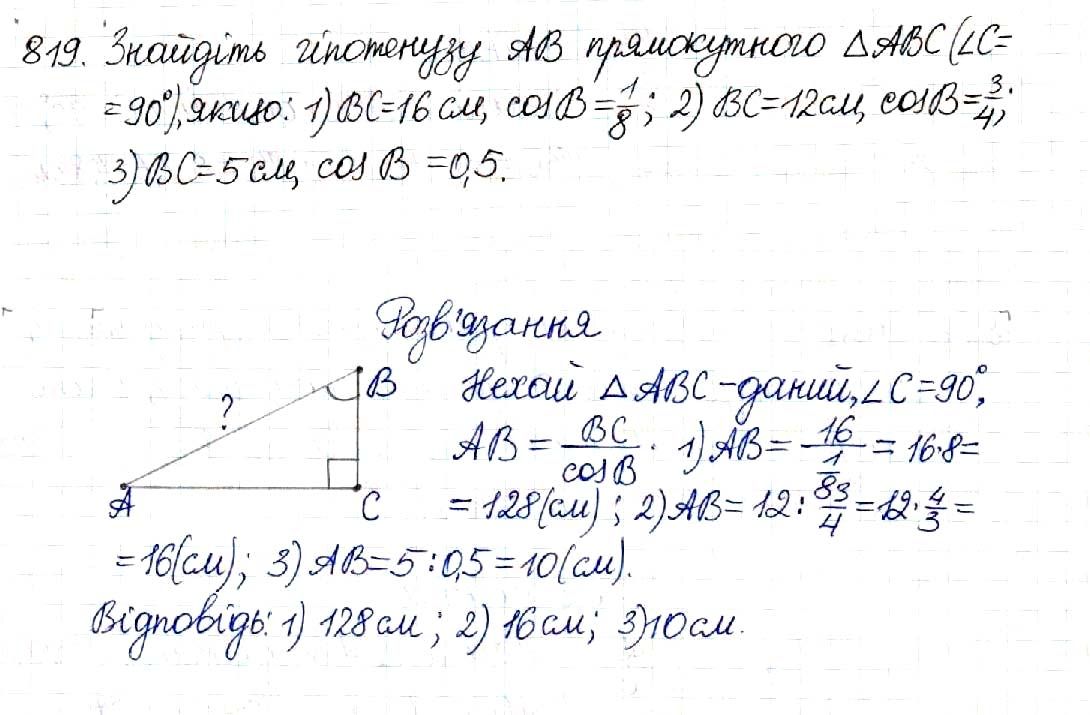 819. Знайдіть гіпотенузу AB прямокутного △ABC (∠C=
=90°), якщо: 1) BC=16 см, cosB=1/8; 2) BC=12см, cosB=3/4;
3) BC=5 см, cos B =0,5.
Розв'язання
B Нехай △ABC - даний, ∠C=90°,
?
AB = BC/cosB. 1) AB = 16/(1/8) = 16·8=
A C = 128(см); 2) AB = 12 : 3/4 = 12·4/3 =
=16(см); 3) AB=5:0,5=10(см).
Відповідь: 1) 128см; 2) 16см; 3)10см.